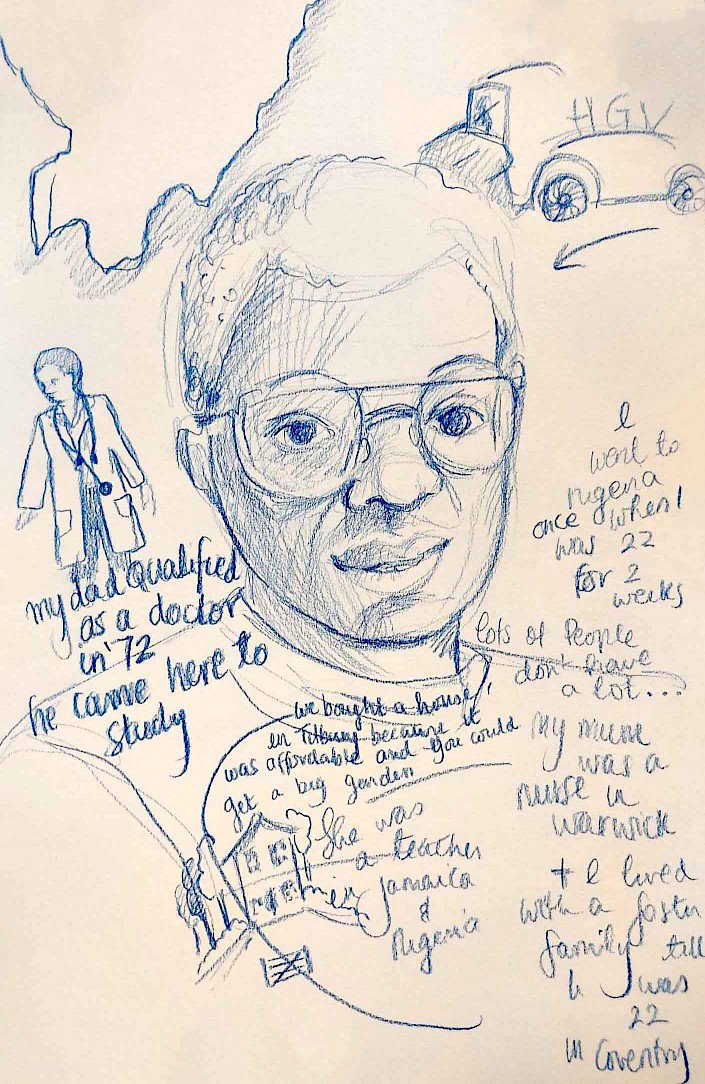 HGV
I
went to
nigeria
once when I
was 22
for 2
weeks
my dad qualified
as a doctor
in '72
he came here to
study
lots of People
don't have
a lot...
we bought a house
in Tilbury because it
was affordable and you could
get a big garden
My mum
was a
nurse in
warwick
She was
a teacher
in Jamaica
&
Nigeria
+ I lived
with a foster
family till
I was
22
in Coventry